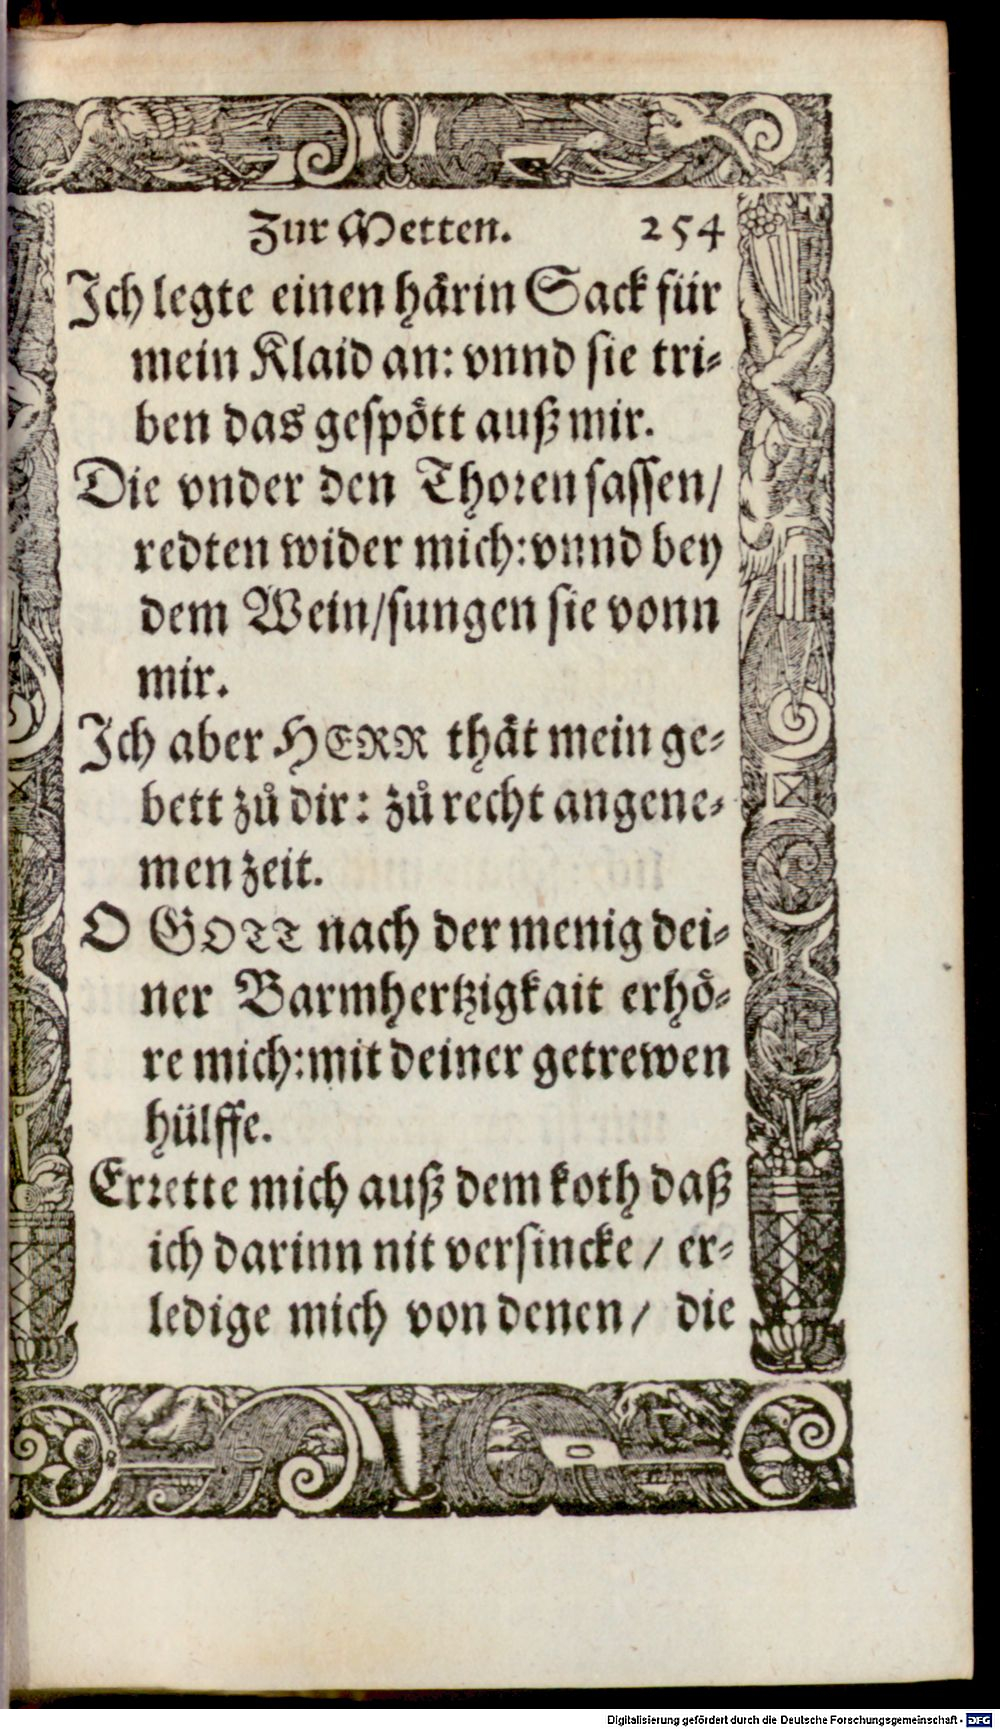 Zur Metten. 254
Ich legte einen härin Sack für
mein Klaid an: vnnd sie tri-
ben das gespött auß mir.
Die vnder den Thoren sassen/
redten wider mich: vnnd bey
dem Wein/sungen sie vonn
mir.
Ich aber HERR thät mein ge-
bett zů dir: zů recht angene-
men zeit.
O GOTT nach der menig dei-
ner Barmhertzigkait erhö-
re mich: mit deiner getrewen
hülffe.
Errette mich auß dem koth daß
ich darinn nit versincke / er-
ledige mich von denen / die
Digitalisierung gefördert durch die Deutsche Forschungsgemeinschaft - DFG